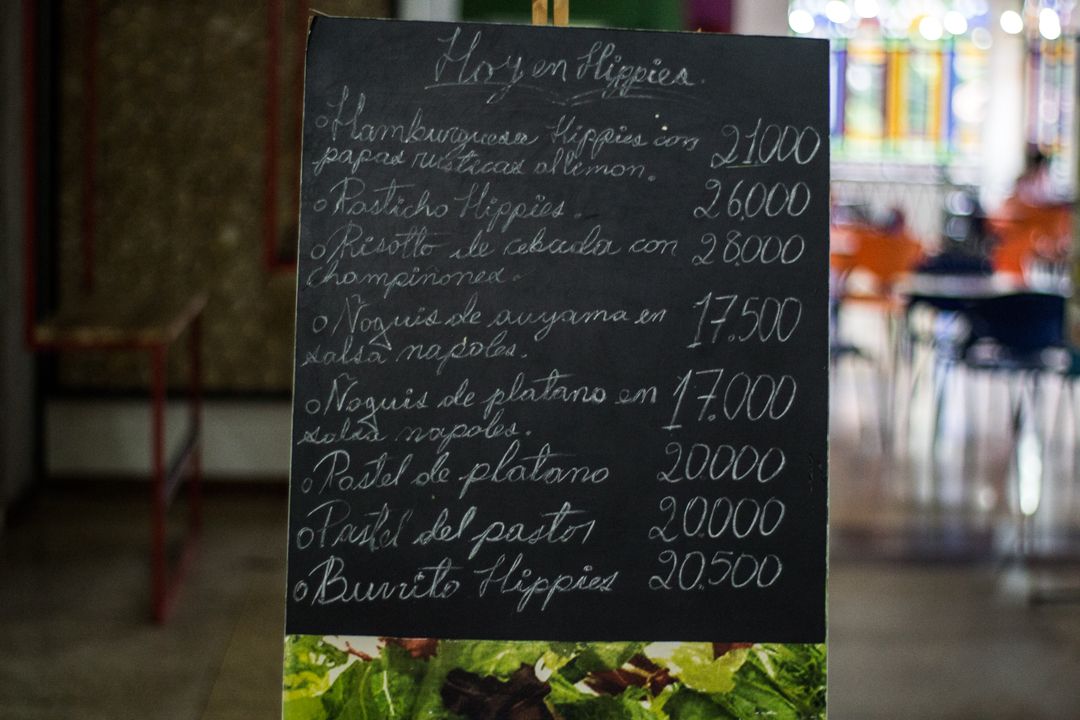 Hoy en Hippies.
Hamburguesa Hippies con 21.000
papas rusticas al limon.
Pasticho Hippies. 26.000
Risotto de cebada con 28.000
champiñones.
Ñoquis de auyama en 17.500
salsa napoles.
Ñoquis de platano en 17.000
salsa napoles.
Pastel de platano 20.000
Pastel del pastor 20.000
Burrito Hippies 20.500